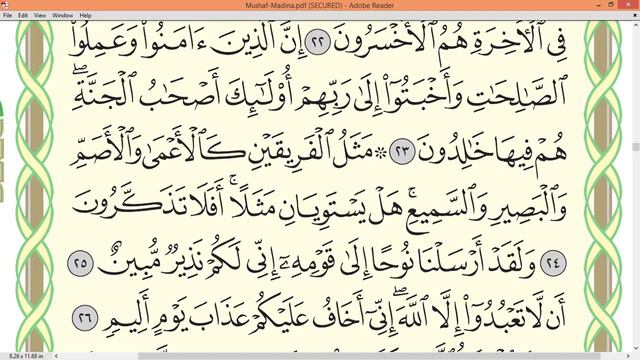 Mushaf-Madina.pdf (SECURED) - Adobe Reader
File Edit View Window Help
فِي ٱلْأٓخِرَةِ هُمُ ٱلْأَخْسَرُونَ ٢٢ إِنَّ ٱلَّذِينَ ءَامَنُوا۟ وَعَمِلُوا۟
ٱلصَّٰلِحَٰتِ وَأَخْبَتُوٓا۟ إِلَىٰ رَبِّهِمْ أُو۟لَٰٓئِكَ أَصْحَٰبُ ٱلْجَنَّةِۖ
هُمْ فِيهَا خَٰلِدُونَ ٢٣ ۞ مَثَلُ ٱلْفَرِيقَيْنِ كَٱلْأَعْمَىٰ وَٱلْأَصَمِّ
وَٱلْبَصِيرِ وَٱلسَّمِيعِۚ هَلْ يَسْتَوِيَانِ مَثَلًاۚ أَفَلَا تَذَكَّرُونَ
٢٤ وَلَقَدْ أَرْسَلْنَا نُوحًا إِلَىٰ قَوْمِهِۦٓ إِنِّي لَكُمْ نَذِيرٌ مُّبِينٌ ٢٥
أَن لَّا تَعْبُدُوٓا۟ إِلَّا ٱللَّهَۖ إِنِّيٓ أَخَافُ عَلَيْكُمْ عَذَابَ يَوْمٍ أَلِيمٍ ٢٦
8.26 x 11.68 in